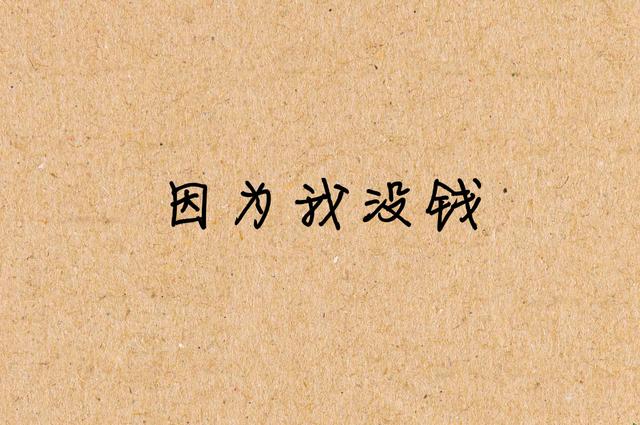 因为我没钱